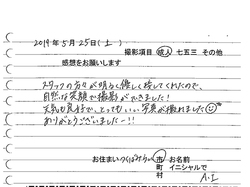 2019年5月25日(土)
撮影項目 成人 七五三 その他
感想をお願いします
スタッフの方々が明るく、優しく接してくれたので、
自然な笑顔で撮影ができました!
天気も良好で、とってもいい写真が撮れました
ありがとうございましたー!!
お住まい つくばみらい 市町村
お名前 イニシャルで A.I